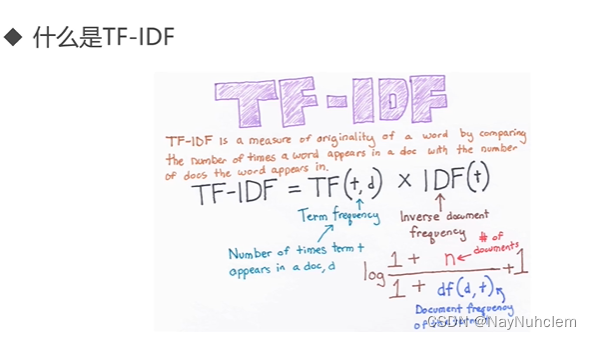 ◆ 什么是TF-IDF
TF-IDF
TF-IDF is a measure of originality of a word by comparing
the number of times a word appears in a doc with the number
of docs the word appears in.
TF-IDF = TF(t, d) × IDF(t)
Term frequency
Inverse document
frequency
Number of times term t
appears in a doc, d
# of
documents
log 1 + n / 1 + df(d, t) + 1
Document frequency
of
CSDN @NayNuhclem